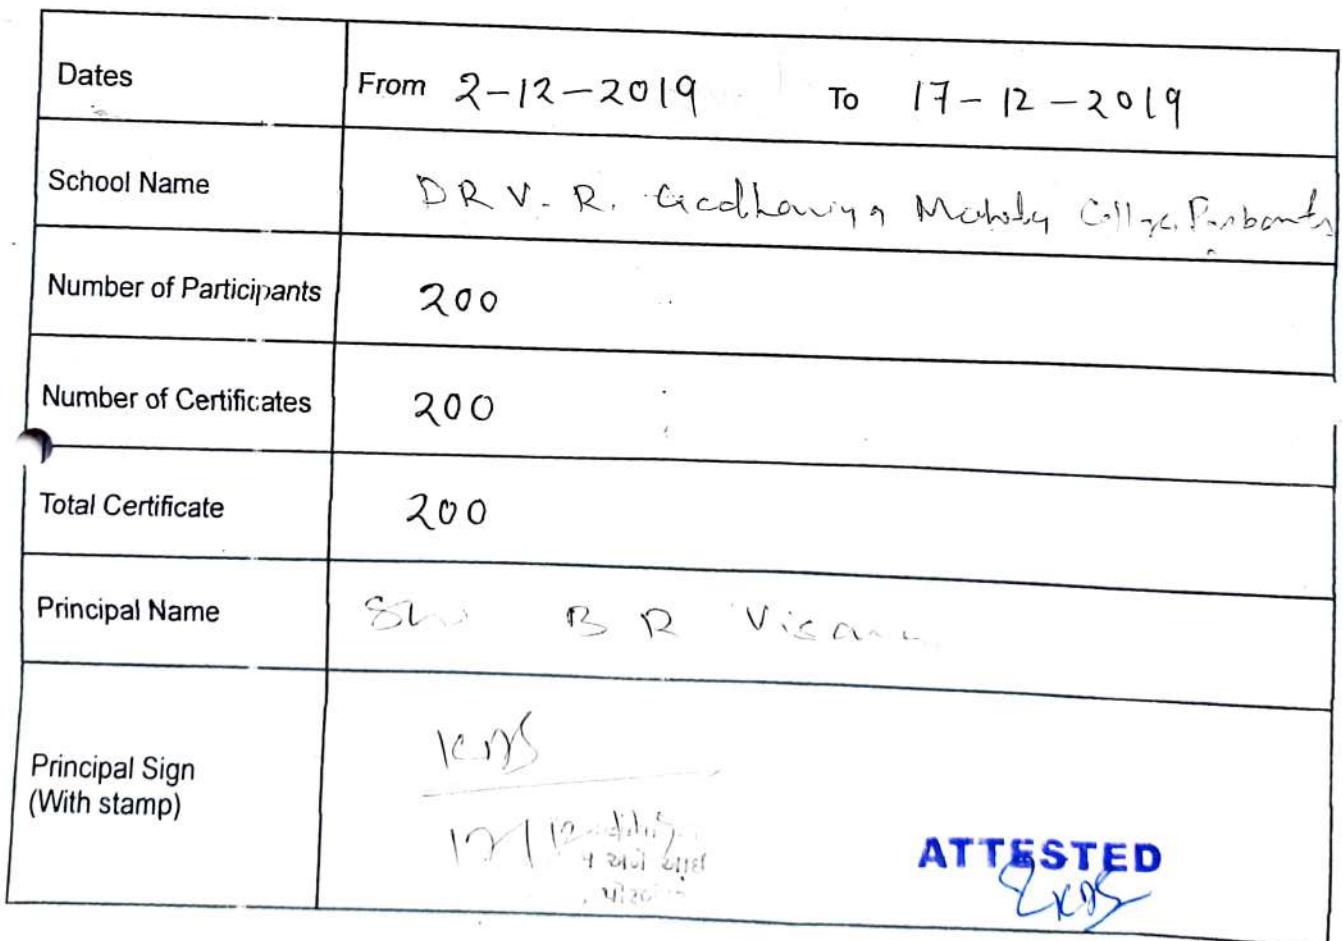 Dates From 2-12-2019 To 17-12-2019
School Name DR V. R. Godhaniya College, Porbandar
Number of Participants 200
Number of Certificates 200
Total Certificate 200
Principal Name B R
Principal Sign
(With stamp)
17/12
ATTESTED